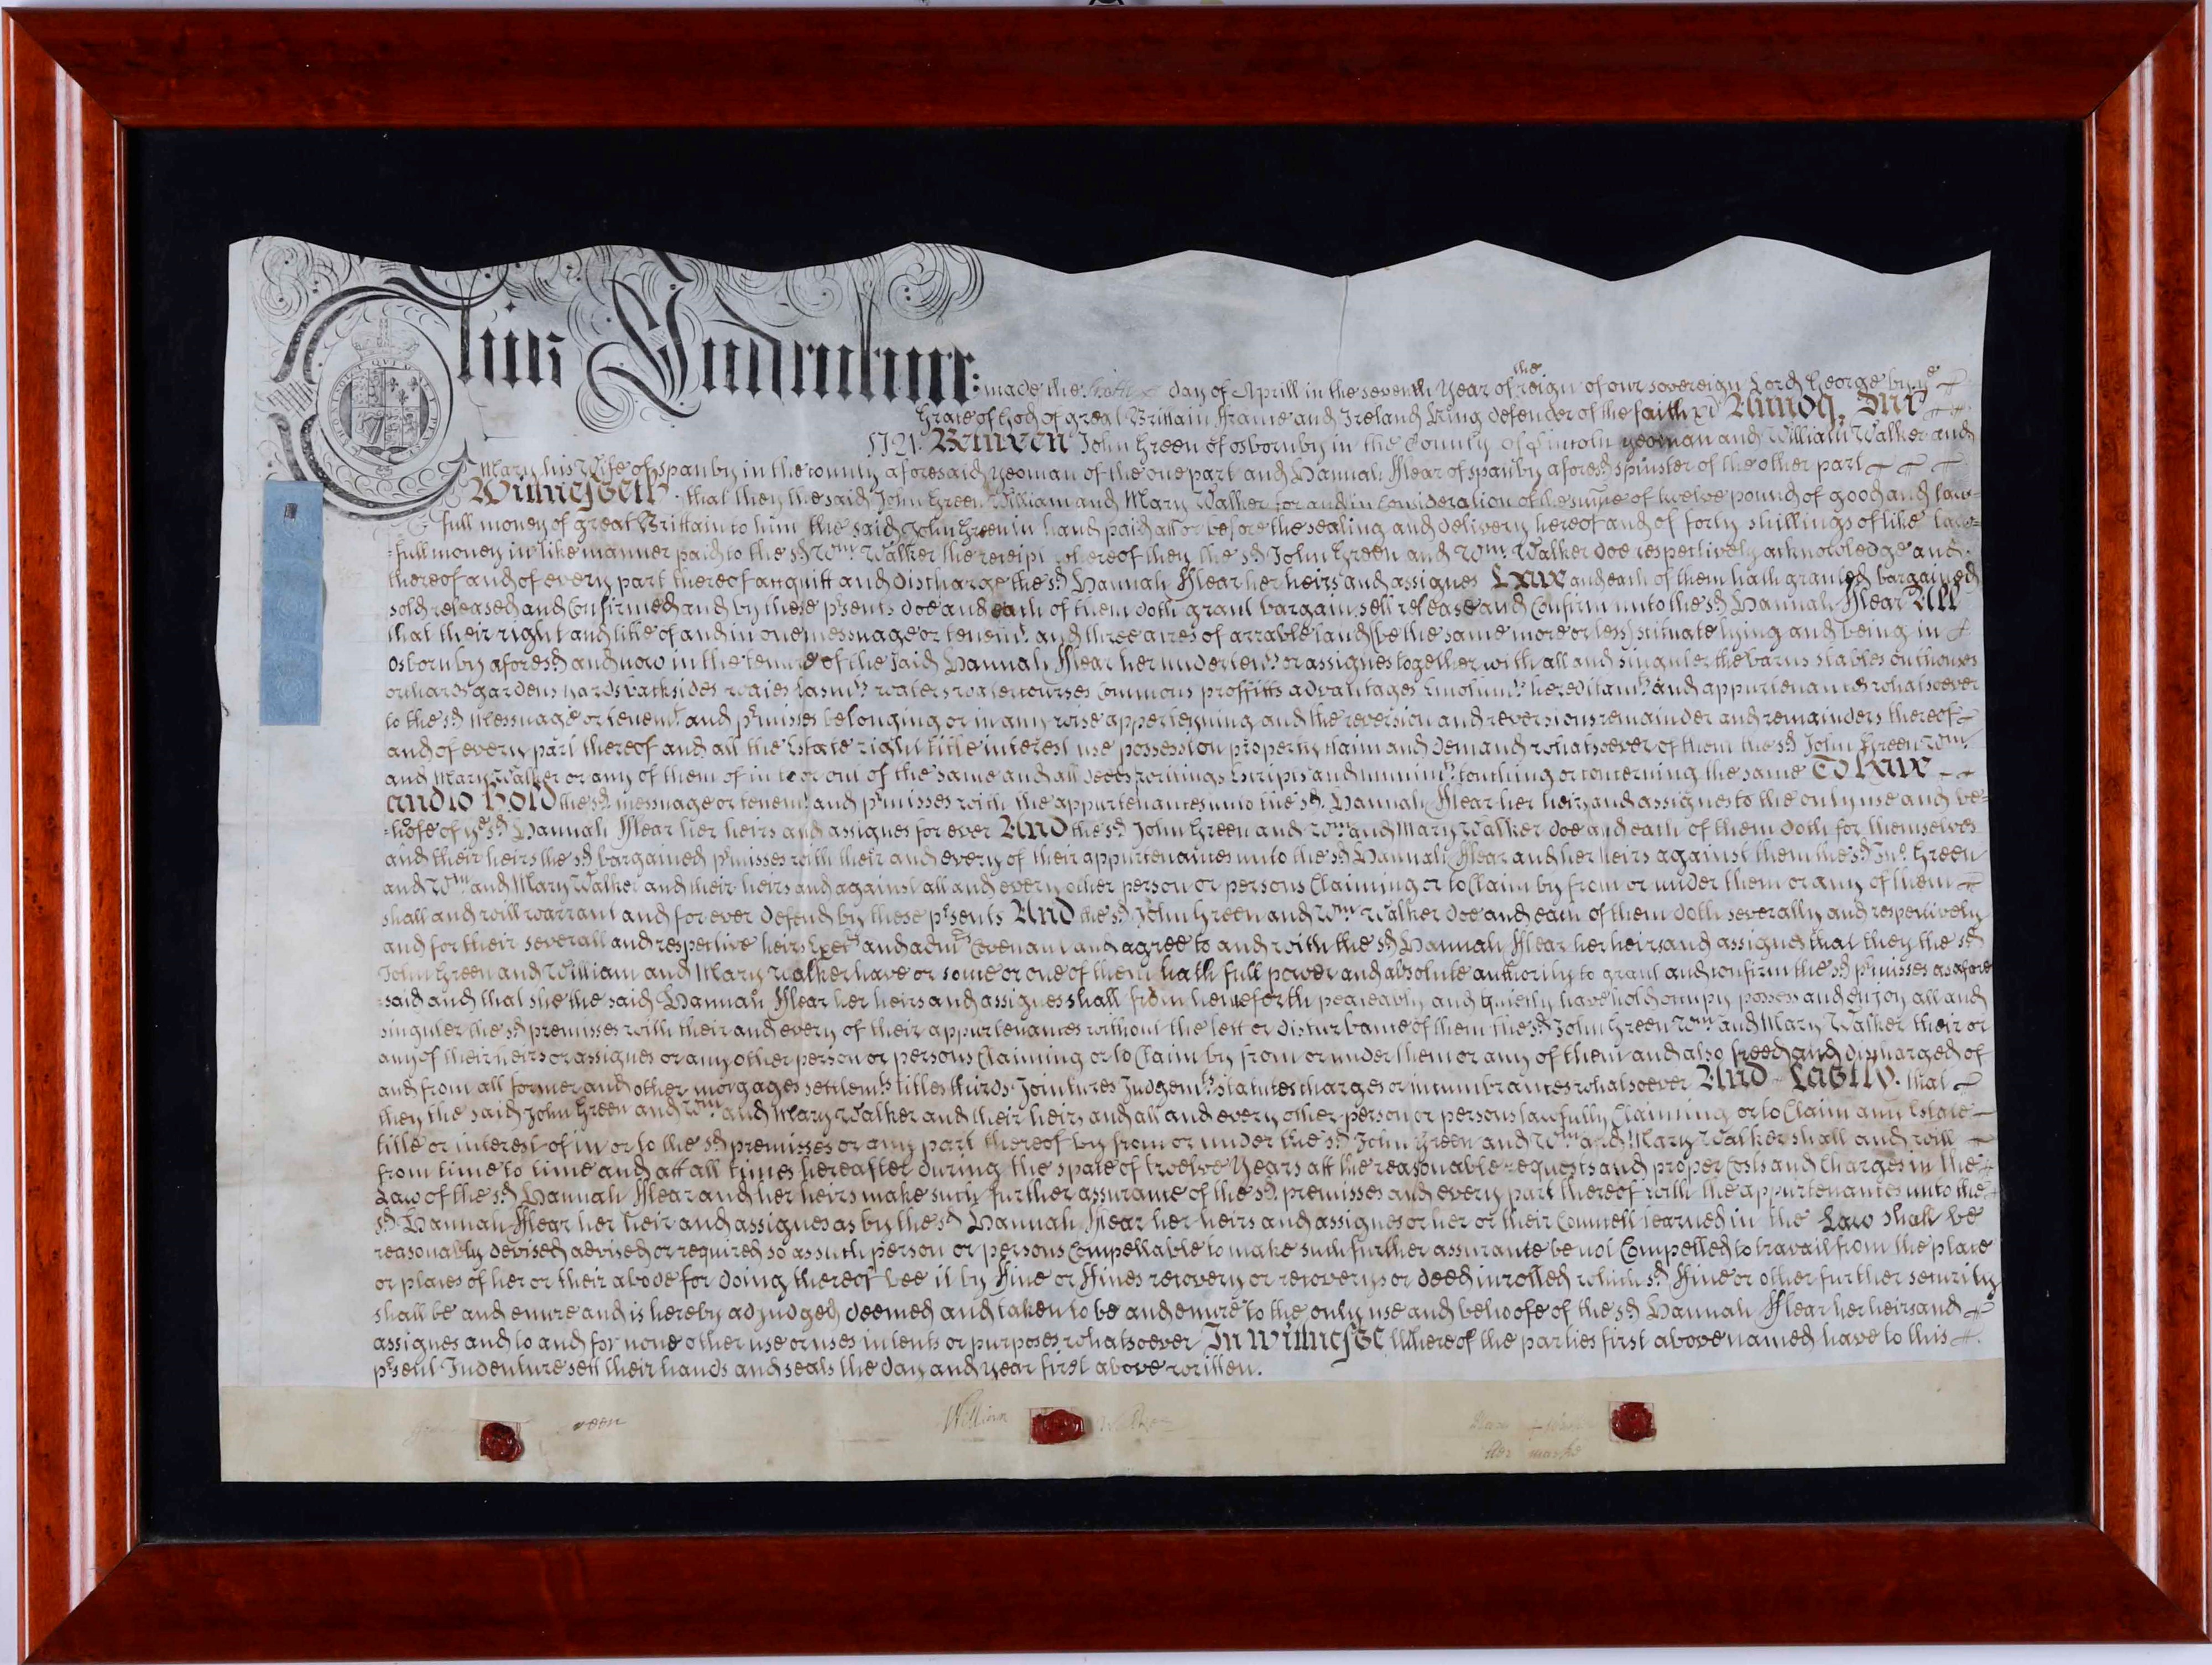 This Indenture: made the day of Aprill in the seventh Year of the reign of our sovereign Lord George by ye
Grace of God of great Brittain France and Ireland King defender of the faith &c Annoq. Dni
1721. Between John Green of osbornby in the County of Lincoln yeoman and William Walker and
Mary his Wife of spanby in the county aforesaid yeoman of the one part and Hannah fflear of spanby aforesd spinster of the other part
Witnesseth. that they the said John Green William and Mary Walker for and in Consideration of the sume of twelve pound of good and law=
full money of great Brittain to him the said John Green in hand paid att or before the sealing and delivery hereof and of forty shillings of like law=
=full money in like manner paid to the sd Wm. Walker the receipt whereof they the sd John Green and Wm. Walker doe respectively acknowledge and
thereof and of every part thereof acquitt and discharge the sd Hannah fflear her heirs and assignes Have and each of them hath granted bargained
sold released and Confirmed and by these psents doe and each of them doth grant bargain sell release and Confirm unto the sd Hannah fflear All
that their right and title of and in one messuage or tenemt. and three acres of arrable land (be the same more or less) scituate lying and being in
osbornby aforesd and now in the tenure of the said Hannah fflear her undertents or assignes together with all and singuler the barns stables outhouses
orchards gardens yards backsides waies easmts waters watercourses Commons proffitts advantages Emolumts hereditamts and appurtenances whatsoever
to the sd Messuage or tenemt. and pmisses belonging or in any wise apperteyning and the reversion and reversions remainder and remainders thereof
and of every part thereof and all the Estate right title interest use possession property claim and demand whatsoever of them the sd John Green Wm.
and Mary Walker or any of them of in to or out of the same and all deeds writings scripts and munimts touching or concerning the same To have
and to hold the sd messuage or tenemt. and pmisses with the appurtenances unto the sd. Hannah fflear her heirs and assignes to the only use and be=
=hoofe of ye sd Hannah fflear her heirs and assignes for ever And the sd John Green and Wm and Mary Walker doe and each of them doth for themselves
and their heirs the sd bargained pmisses with their and every of their appurtenances unto the sd Hannah fflear and her heirs against them the sd Jno. Green
and Wm and Mary Walker and their heirs and against all and every other person or persons Claiming or to Claim by from or under them or any of them
shall and will warrant and for ever defend by these psents And the sd John Green and Wm Walker doe and each of them doth severally and respectively
and for their severall and respective heirs Execrs and admrs Covenant and agree to and with the sd Hannah fflear her heirs and assignes that they the sd
John Green and William and Mary Walker have or some or one of them hath full power and absolute authority to grant and confirm the sd pmisses as afore
=said and that she the said Hannah fflear her heirs and assignes shall from henceforth peaceably and quietly have hold occupy possess and Enjoy all and
singuler the sd premisses with their and every of their appurtenances without the lett or disturbance of them the sd John Green Wm and Mary Walker their or
any of their heirs or assignes or any other person or persons Claiming or to Claim by from or under them or any of them and also freed and discharged of
and from all former and other morgages settlemts titles thirds Jointures Judgemts statutes charges or incumbrances whatsoever And Lastly. that
they the said John Green and Wm and Mary Walker and their heirs and all and every other person or persons lawfully Claiming or to Claim any Estate
title or interest of in or to the sd premisses or any part thereof by from or under the sd John Green and Wm and Mary Walker shall and will
from time to time and att all times hereafter during the space of twelve Years att the reasonable requests and proper Costs and Charges in the
Law of the sd Hannah fflear and her heirs make such further assurance of the sd premisses and every part thereof with the appurtenances unto the
sd Hannah fflear her heirs and assignes as by the sd Hannah fflear her heirs and assignes or her or their Councell learned in the Law shall be
reasonably devised advised or required so as such person or persons Compellable to make such further assurance be not Compelled to travail from the place
or places of her or their abode for doing thereof bee it by ffine or ffines recovery or recoverys or deed inrolled which sd ffine or other further security
shall be and enure and is hereby adjudged deemed and taken to be and enure to the only use and behoofe of the sd Hannah fflear her heirs and
assignes and to and for none other use or uses intents or purposes whatsoever In witnesse Whereof the parties first above named have to this
psent Indenture sett their hands and seals the day and year first above written.
William Walker
her marke